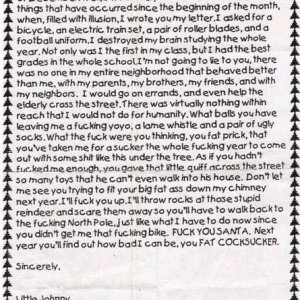 things that have occurred since the beginning of the month,
when, filled with illusion, I wrote you my letter. I asked for a
bicycle, an electric train set, a pair of roller blades, and a
football uniform. I destroyed my brain studying the whole
year. Not only was I the first in my class, but I had the best
grades in the whole school. I'm not going to lie to you, there
was no one in my entire neighborhood that behaved better
than me, with my parents, my brothers, my friends, and with
my neighbors. I would go on errands, and even help the
elderly cross the street. There was virtually nothing within
reach that I would not do for humanity. What balls you have
leaving me a fucking yoyo, a lame whistle and a pair of ugly
socks. What the fuck were you thinking, you fat prick, that
you've taken me for a sucker the whole fucking year to come
out with some shit like this under the tree. As if you hadn't
fucked me enough, you gave that little quiff across the street
so many toys that he can't even walk into his house. Don't let
me see you trying to fit your big fat ass down my chimney
next year. I'll fuck you up. I'll throw rocks at those stupid
reindeer and scare them away so you'll have to walk back to
the fucking North Pole, just like what I have to do now since
you didn't get me that fucking bike. FUCK YOU SANTA. Next
year you'll find out how bad I can be, you FAT COCKSUCKER.
Sincerely,
Little Johnny